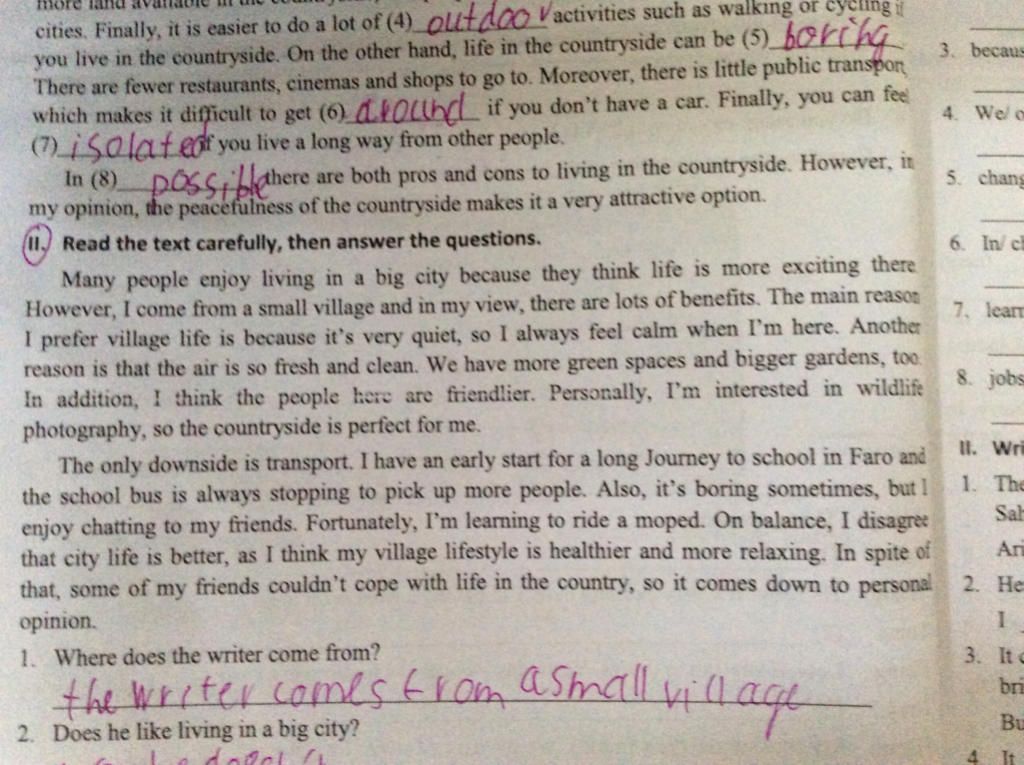 more land available in the
cities. Finally, it is easier to do a lot of (4) outdoor activities such as walking or cycling if
you live in the countryside. On the other hand, life in the countryside can be (5) boring
There are fewer restaurants, cinemas and shops to go to. Moreover, there is little public transport,
which makes it difficult to get (6) around if you don't have a car. Finally, you can feel
(7) isolated if you live a long way from other people.
In (8) possible there are both pros and cons to living in the countryside. However, in
my opinion, the peacefulness of the countryside makes it a very attractive option.
II. Read the text carefully, then answer the questions.
Many people enjoy living in a big city because they think life is more exciting there
However, I come from a small village and in my view, there are lots of benefits. The main reason
I prefer village life is because it's very quiet, so I always feel calm when I'm here. Another
reason is that the air is so fresh and clean. We have more green spaces and bigger gardens, too.
In addition, I think the people here are friendlier. Personally, I'm interested in wildlife
photography, so the countryside is perfect for me.
The only downside is transport. I have an early start for a long Journey to school in Faro and
the school bus is always stopping to pick up more people. Also, it's boring sometimes, but I
enjoy chatting to my friends. Fortunately, I'm learning to ride a moped. On balance, I disagree
that city life is better, as I think my village lifestyle is healthier and more relaxing. In spite of
that, some of my friends couldn't cope with life in the country, so it comes down to personal
opinion.
1. Where does the writer come from?
the writer comes from a small village
2. Does he like living in a big city?
he doesn't
3. becaus
4. We/ o
5. chang
6. In/ cl
7. learn
8. jobs
II. Wri
1. The
Sah
Ari
2. He
I
3. It
bri
Bu
4. It